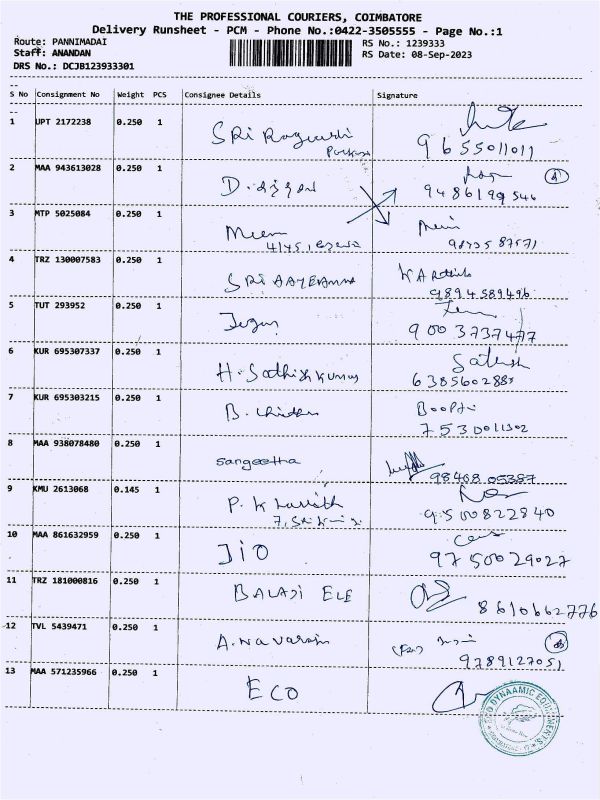 THE PROFESSIONAL COURIERS, COIMBATORE
Delivery Runsheet - PCM - Phone No.:0422-3505555 - Page No.:1
Route: PANNIMADAI
RS No.: 1239333
Staff: ANANDAN
RS Date: 08-Sep-2023
DRS No.: DCJB123933301
S No Consignment No Weight PCS Consignee Details Signature
1 UPT 2172238 0.250 1 SRi
9655011011
2 MAA 943613028 0.250 1 D.
3 MTP 5025084 0.250 1 Meem
4 TRZ 130007583 0.250 1 SRI
9894589496
5 TUT 293952 0.250 1 Jegan
9003737477
6 KUR 695307337 0.250 1 H. Sathish kumar Sathish
6385602885
7 KUR 695303215 0.250 1 B.
7530011302
8 MAA 938078480 0.250 1 sangeetha
98468 05387
9 KMU 2613068 0.145 1 P. K
9500822840
10 MAA 861632959 0.250 1 JIO
9750029027
11 TRZ 181000816 0.250 1 BALAJI ELE
8610662776
12 TVL 5439471 0.250 1 A.
9789127051
13 MAA 571235966 0.250 1 ECO